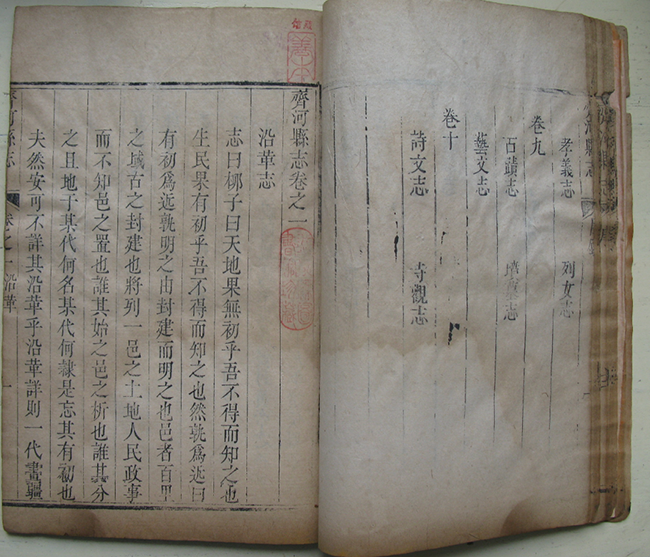 孝義志 列女志
卷九
古蹟志
藝文志
卷十
詩文志 寺觀志
齊河縣志卷之一
沿革志
志曰栁子曰天地果無初乎吾不得而知之也
生民果有初乎吾不得而知之也然孰爲近曰
有初爲近孰明之由封建而明之也邑者百里
之域古之封建也將列一邑之土地人民政事
而不知邑之置也誰其始之邑之析也誰其分
之且地于某代何名某代何隸是忘其有初也
夫然安可不詳其沿革乎沿革詳則一代畫疆
齊河縣志 卷之一 沿革 一